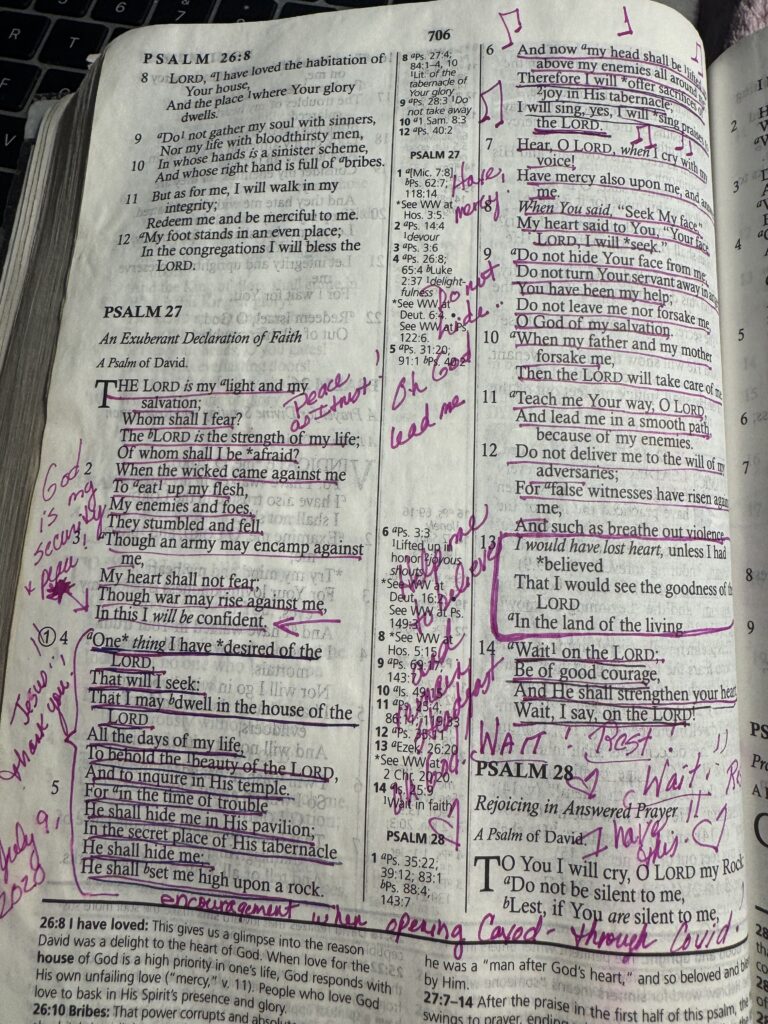 706
PSALM 26:8
8 LORD, ᵃI have loved the habitation of
Your house,
And the place ¹where Your glory
dwells.
9 ᵃDo¹ not gather my soul with sinners,
Nor my life with bloodthirsty men,
10 In whose hands is a sinister scheme,
And whose right hand is full of ᵃbribes.
11 But as for me, I will walk in my
integrity;
Redeem me and be merciful to me.
12 ᵃMy foot stands in an even place;
In the congregations I will bless the
LORD.
PSALM 27
An Exuberant Declaration of Faith
A Psalm of David.
THE LORD is my ᵃlight and my
salvation;
Whom shall I fear?
The ᵇLORD is the strength of my life;
Of whom shall I be *afraid?
2 When the wicked came against me
To ᵃeat¹ up my flesh,
My enemies and foes,
They stumbled and fell.
3 ᵃThough an army may encamp against
me,
My heart shall not fear;
Though war may rise against me,
In this I will be confident.
1 4 ᵃOne* thing I have *desired of the
LORD,
That will I seek:
That I may ᵇdwell in the house of the
LORD
All the days of my life,
To behold the ¹beauty of the LORD,
And to inquire in His temple.
5 For ᵃin the time of trouble
He shall hide me in His pavilion;
In the secret place of His tabernacle
He shall hide me;
He shall ᵇset me high upon a rock.
Peace as I trust!
God
is my
security
Jesus..!!
thank you!
July 9,
2020
encouragement when opening Covod - through Covid.
8 ᵃPs. 27:4;
84:1–4, 10
¹Lit. of the
tabernacle of
Your glory
9 ᵃPs. 28:3 ¹Do
not take away
10 ᵃ1 Sam. 8:3
12 ᵃPs. 40:2
PSALM 27
1 ᵃ[Mic. 7:8]
ᵇPs. 62:7;
118:14
*See WW at
Hos. 3:5.
2 ᵃPs. 14:4
¹devour
3 ᵃPs. 3:6
4 ᵃPs. 26:8;
65:4 ᵇLuke
2:37 ¹delight-
fulness
*See WW at
Deut. 6:4.
See WW at Ps.
122:6.
5 ᵃPs. 31:20;
91:1 ᵇPs. 40:2
Have
mercy
Do not
hide..
Oh God
lead me
6 ᵃPs. 3:3
¹Lifted up in
honor ²joyous
shouts
*See WW at
Deut. 16:2
See WW at Ps.
149:3
8 *See WW at
Hos. 5:15
9 ᵃPs. 69:17;
143:7
10 ᵃIs. 49:15
12 ᵃPs. 35:11
13 ᵃEzek. 26:20
*See WW at
2 Chr. 20:20.
14 ᵃPs. 25:9
¹Wait in faith
PSALM 28
1 ᵃPs. 35:22;
39:12; 83:1
ᵇPs. 88:4;
143:7
Help me
to believe
and
remain
steadfast
6 And now ᵃmy head shall be ¹lifted
above my enemies all around
Therefore I will *offer sacrifices of
²joy in His tabernacle;
I will sing, yes, I will *sing praises
the LORD.
7 Hear, O LORD, when I cry with my
voice!
Have mercy also upon me, and
me.
8 When You said, "Seek My face,"
My heart said to You, "Your face,
LORD, I will *seek."
9 ᵃDo not hide Your face from me;
Do not turn Your servant away in
You have been my help;
Do not leave me nor forsake me,
O God of my salvation.
10 ᵃWhen my father and my mother
forsake me,
Then the LORD will take care of me
11 ᵃTeach me Your way, O LORD,
And lead me in a smooth path,
because of my enemies.
12 Do not deliver me to the will of my
adversaries;
For ᵃfalse witnesses have risen
me,
And such as breathe out violence.
13 I would have lost heart, unless I had
*believed
That I would see the goodness of
LORD
ᵃIn the land of the living.
14 ᵃWait¹ on the LORD;
Be of good courage,
And He shall strengthen your
Wait, I say, on the LORD!
WAIT! Rest. !!
PSALM 28
Wait!
Rejoicing in Answered Prayer
A Psalm of David.
I have
this.
TO You I will cry, O LORD my Rock
ᵃDo not be silent to me,
ᵇLest, if You are silent to me,
26:8 I have loved: This gives us a glimpse into the reason
David was a delight to the heart of God. When love for the
house of God is a high priority in one's life, God responds with
His own unfailing love ("mercy," v. 11). People who love God
love to bask in His Spirit's presence and glory.
26:10 Bribes: That power corrupts and
he was a "man after God's heart," and so beloved and
by Him.
27:7–14 After the praise in the first half of this psalm, the
swings to prayer, ending